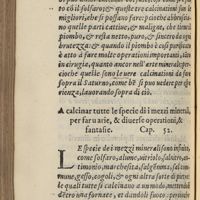 to cō il solfaro, & queste cosi calcinationi sō le
migliori, che si possano fare: pcioche abbrusia-
no quelle parti cattiue, & maligne, che tiene il
piombo, & resta netto, puro, & pietro da ogni
bruttezza: & quando il piombo è cosi purgato
è atto à fare molte operationi importanti, sì
in cirugia, quanto ancor nell'arte minerale: per-
cioche quelle sono le uere calcinationi da far
sopra il Saturno, come bē si può ueder per es-
perienza, lauorando sopra di ciò.
A calcinar tutte le specie de i mezi minerali,
per far uarie, & diuerse operationi, &
fantasie. Cap. 51.
LE specie de i mezzi minerali sono infinite,
come solfaro, alume, uitriolo, salnitro, an-
timonio, marchesita, salgemma, sal com-
mune, gesso, cogoli, & ogni altra sorte di pietre
le quali tutte si calcinano a un modo, mettendole
dētro una fornace a fuoco,